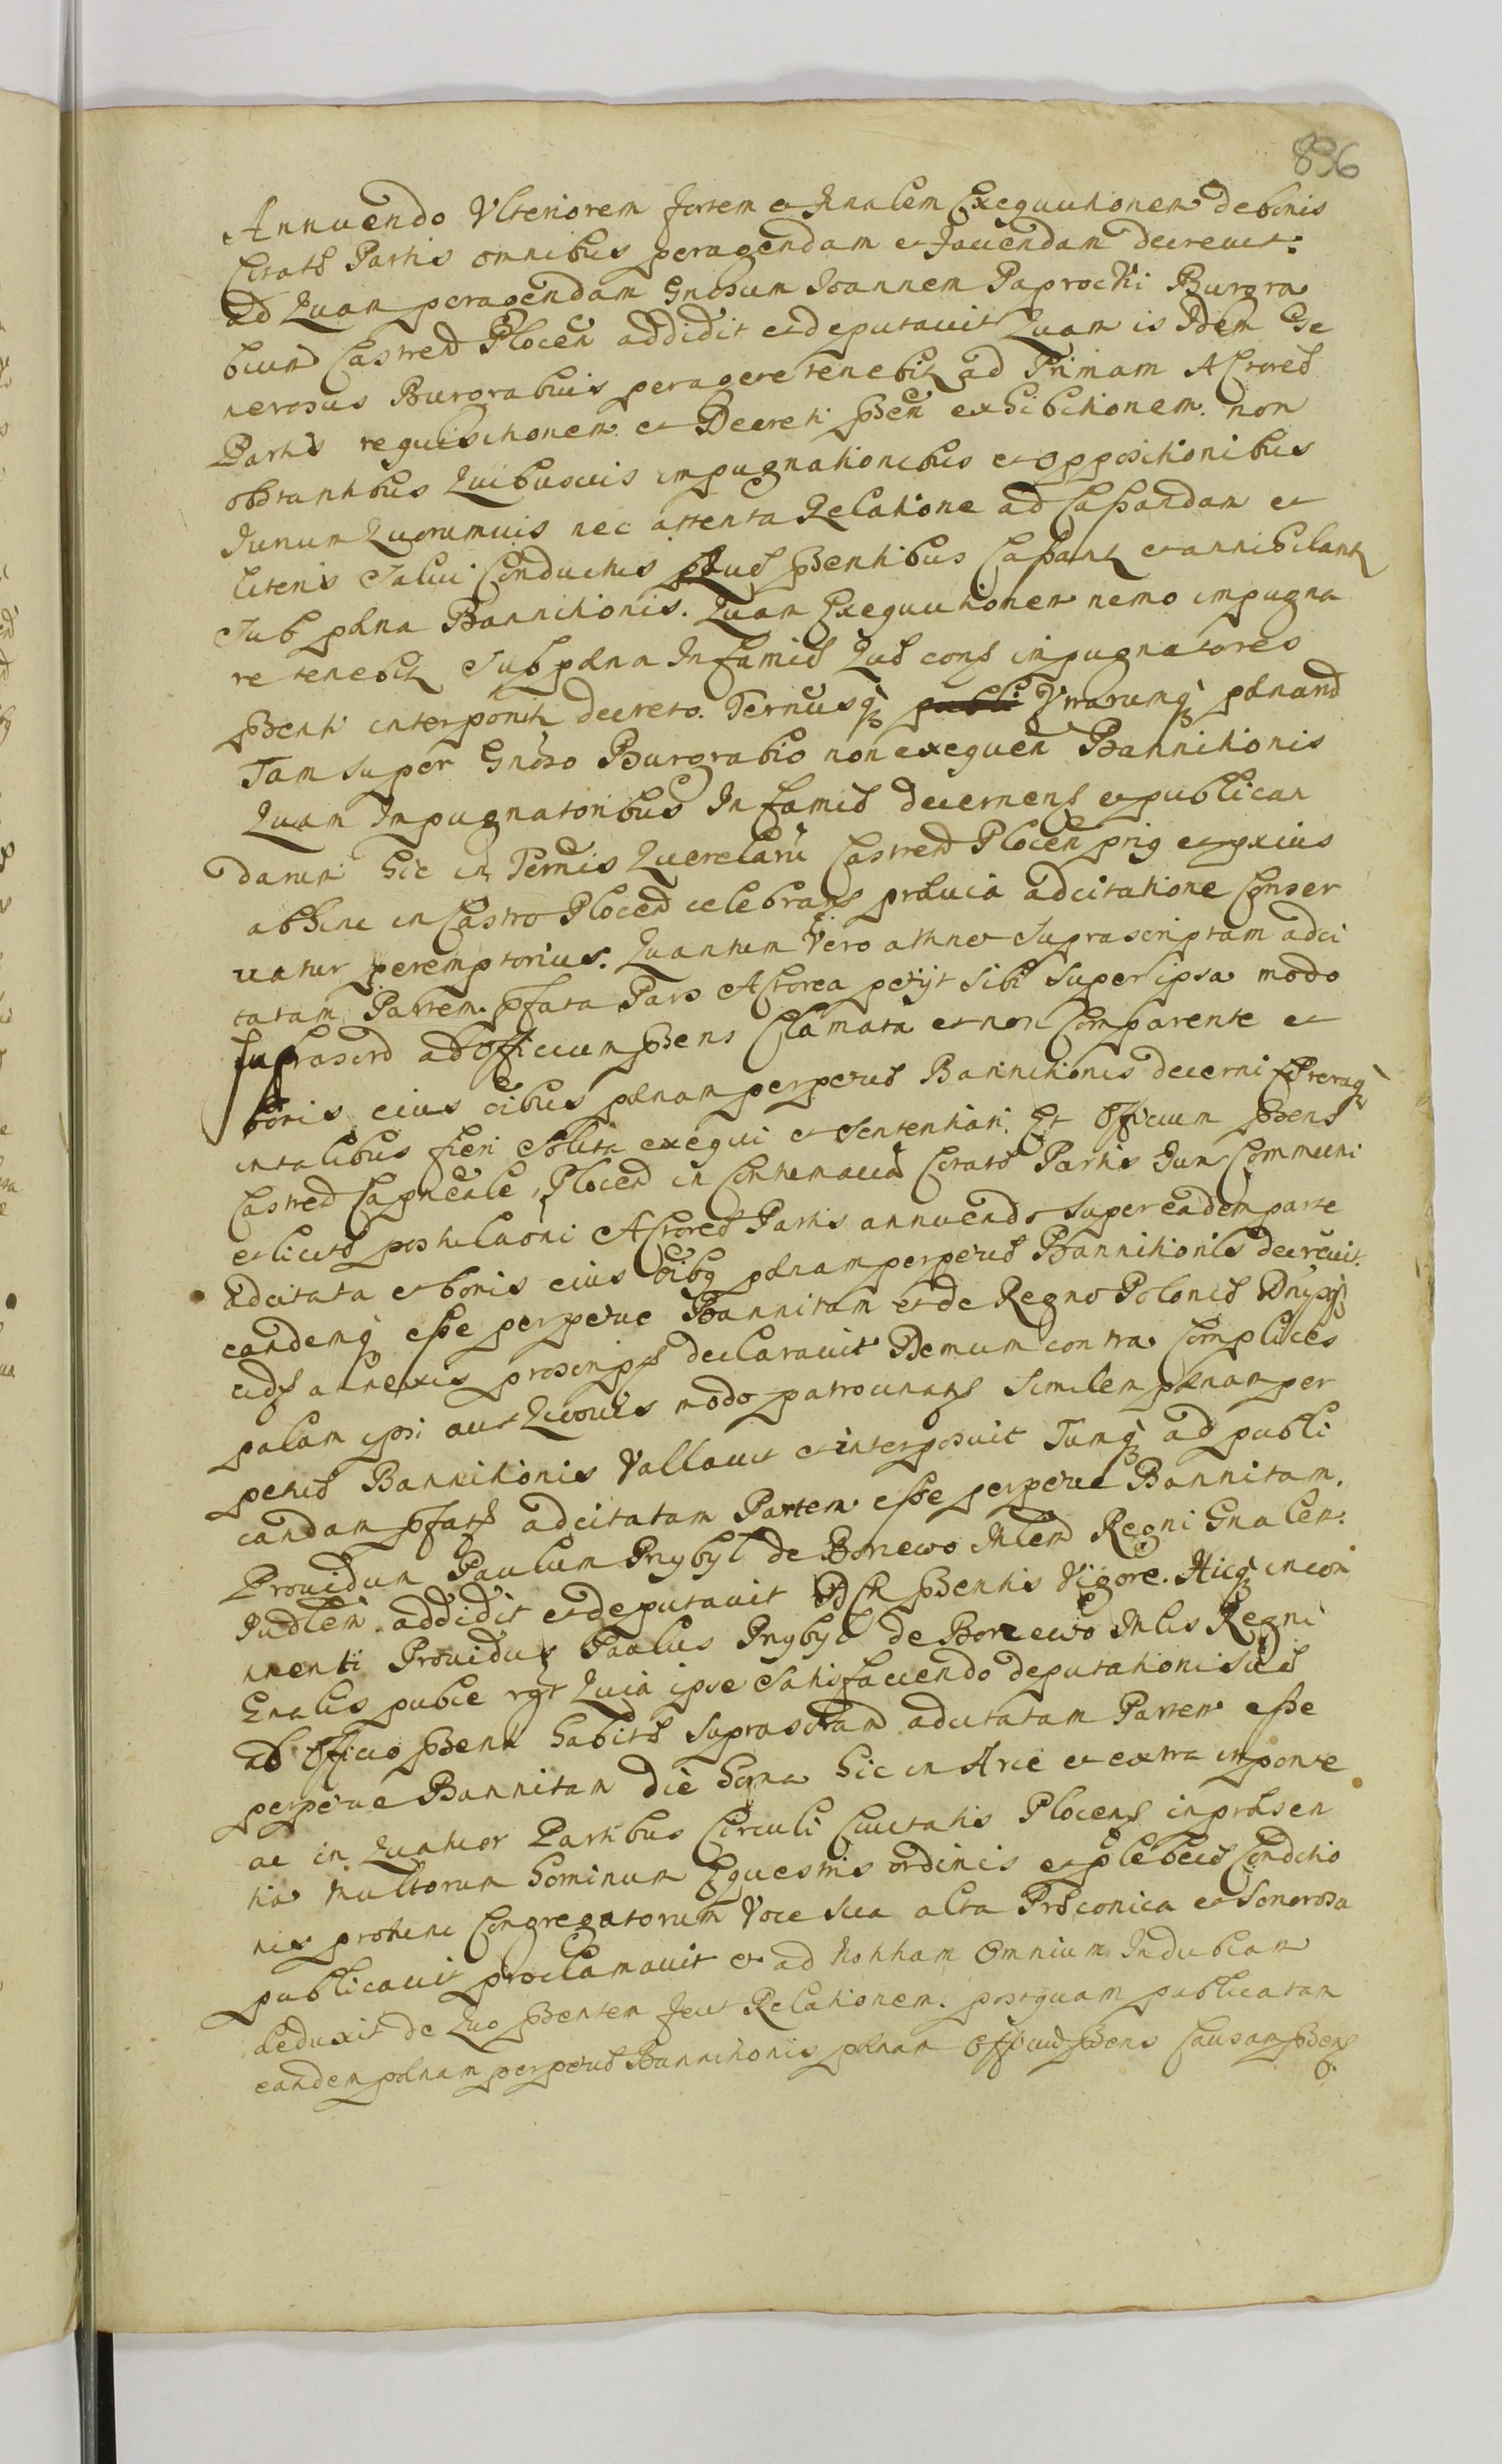 836
Annuendo Ulteriorem fortem et finalem Exequutionem de bonis
Citatæ Partis omnibus peragendam et favendam decrevit:
ad Quam peragendam Gnosum Joannem Paprocki Burgra
bium Castren Plocen addidit et deputavit Quam is Idem Ge
nerosus Burgrabius peragere tenebit ad Primam Actoreæ
Partis requisitionem et Decreti pnsen exhibitionem non
obstantibus Quibusvis impugnationibus et oppositionibus
Jurium Quorumvis nec attenta Relatione ad Cassandam et
literis Salvi Conductus pnsentibus Cassant et annihilant
Sub pæna Bannitionis. Quam Exequutionem nemo impugna
re tenebit Sub pæna Infamiæ Quæ impugnatores
pnsenti interponit decreto. Terminusq publi Utrarumq pænarum
Tam super Gnoso Burgrabio non exequen Bannitionis
Quam Impugnatoribus Infamiæ decernens et publican
darum hic in Termis Querelarum Castren Plocen prig et proxius
abhinc in Castro Plocen celebrans prævia adcitatione Conser
vatur peremptorius. Quantum Vero attinet Suprascriptam adci
tatam Partem. pfata Pars Actorea petijt Sibi Super ipsa modo
suprascrd ad Officium pnsens Clamata et non Comparente et
bonis eius oibus pænam perpetuæ Bannitionis decerni Cæteraq
in talibus fieri Solita exequi et Sententiari. Et Officium pnsens
Castren Capneale Plocen in Contumaciam Citatæ Partis Juri Communi
et licitæ postulaoni Actoreæ Partis annuendo Super eadem parte
adcitata et bonis eius oibq pænam perpetuæ Bannitionis decrevit.
eandemq esse perpetue Bannitam et de Regno Poloniæ Dnysq
eidq annexis proscrips declaravit Demum contra Complices
palam ipsi aut Quovis modo patrocinans Similem pænam per
petuæ Bannitionis Vallavit et interposuit Tumq ad publi
candam pfatæ adcitatam Partem esse perpetue Bannitam.
Providum Paulum Przybyl de Boriewo Mlem Regni Gnalem.
Judlem addidit et deputavit pnsentis Vigore. Hicq in con
nenti Providus Paulus Przybyl de Borzewo Mlis Regni
Gnalis publce rgt Quia ipse Satisfaciendo deputationi Suæ
ab Officio pnsenti habitæ Suprascriptam adcitatam Partem esse
perpetue Bannitam die horna hic in Arce et extra in ponte
ac in Quatuor Partibus Circuli Civitatis Plocens in præsen
tia Multorum hominum Equestris ordinis et plebeiæ Conditio
nis protunc Congregatorum Voce Sua alta Præconica et Sonorosa
publicavit proclamavit et ad Notitiam Omnium Indubiam
deduxit de Quo pnsentem fecit Relationem. postquam publicatam
eandem pænam perpetuæ Bannitionis pænam Officium pnsens Causam pnsens